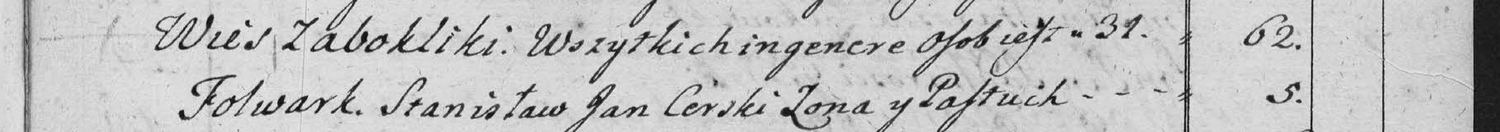 Wieś Zabokliki. Wszytkich in genere osob iest " 31. " 62.
Folwark. Stanisław Jan Cerski Zona y Pastuch - - - " 5.